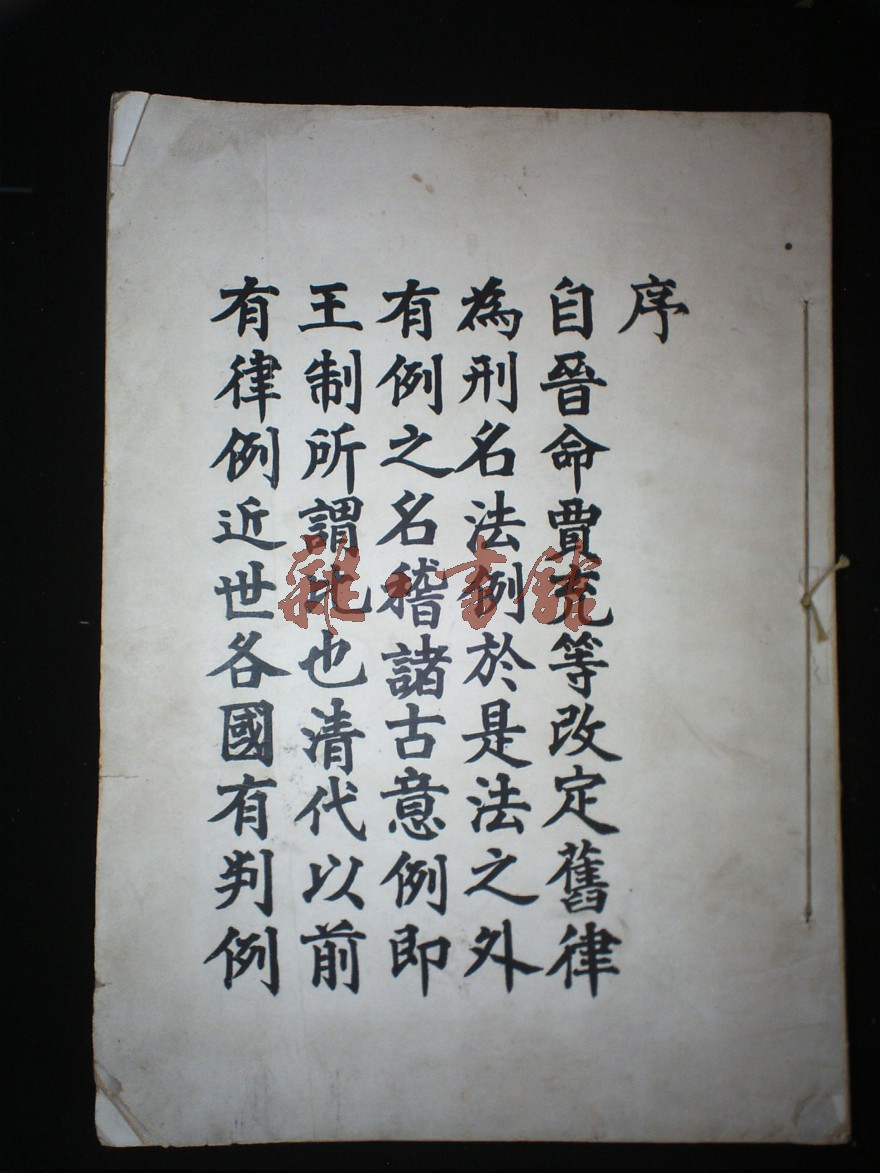 序
自晉命賈充等改定舊律
為刑名法例於是法之外
有例之名稽諸古意例即
王制所謂比也清代以前
有律例近世各國有判例